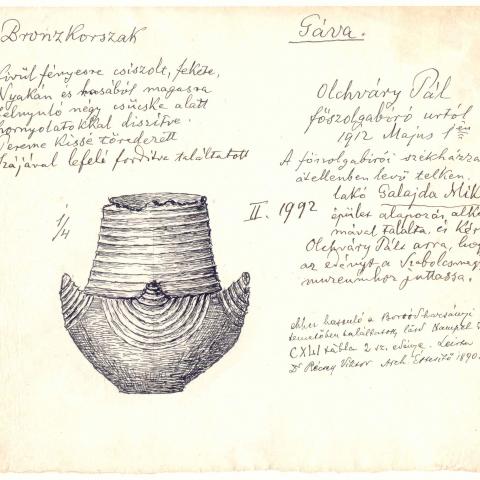 Bronzkorszak
Kívül fényesre csiszolt, fekete,
Nyakán és hasából magasra
felnyuló négy csücske alatt
hornyolatokkal diszitve.
Pereme kissé töredezett
szájával lefelé forditva találtatott
1/4
Gáva.
Olchváry Pál
főszolgabiró urtól
1912 Május 1én
A főszolgabirói székházzal
átellenben levő telken.
lakó Galajda Mik
II. 1992
épület alapozás alkal
mával találta, és kér
Olchváry Pált arra, hog
az edényt a Szabolcsmegy
muzeumhoz juttassa.
ehhez hasonló a
temetőben találtatott, lásd Hampel
CXLII tábla 2 sz. edénye. Leirta
Dr Récsey Viktor Arch. Értesitő 1890.